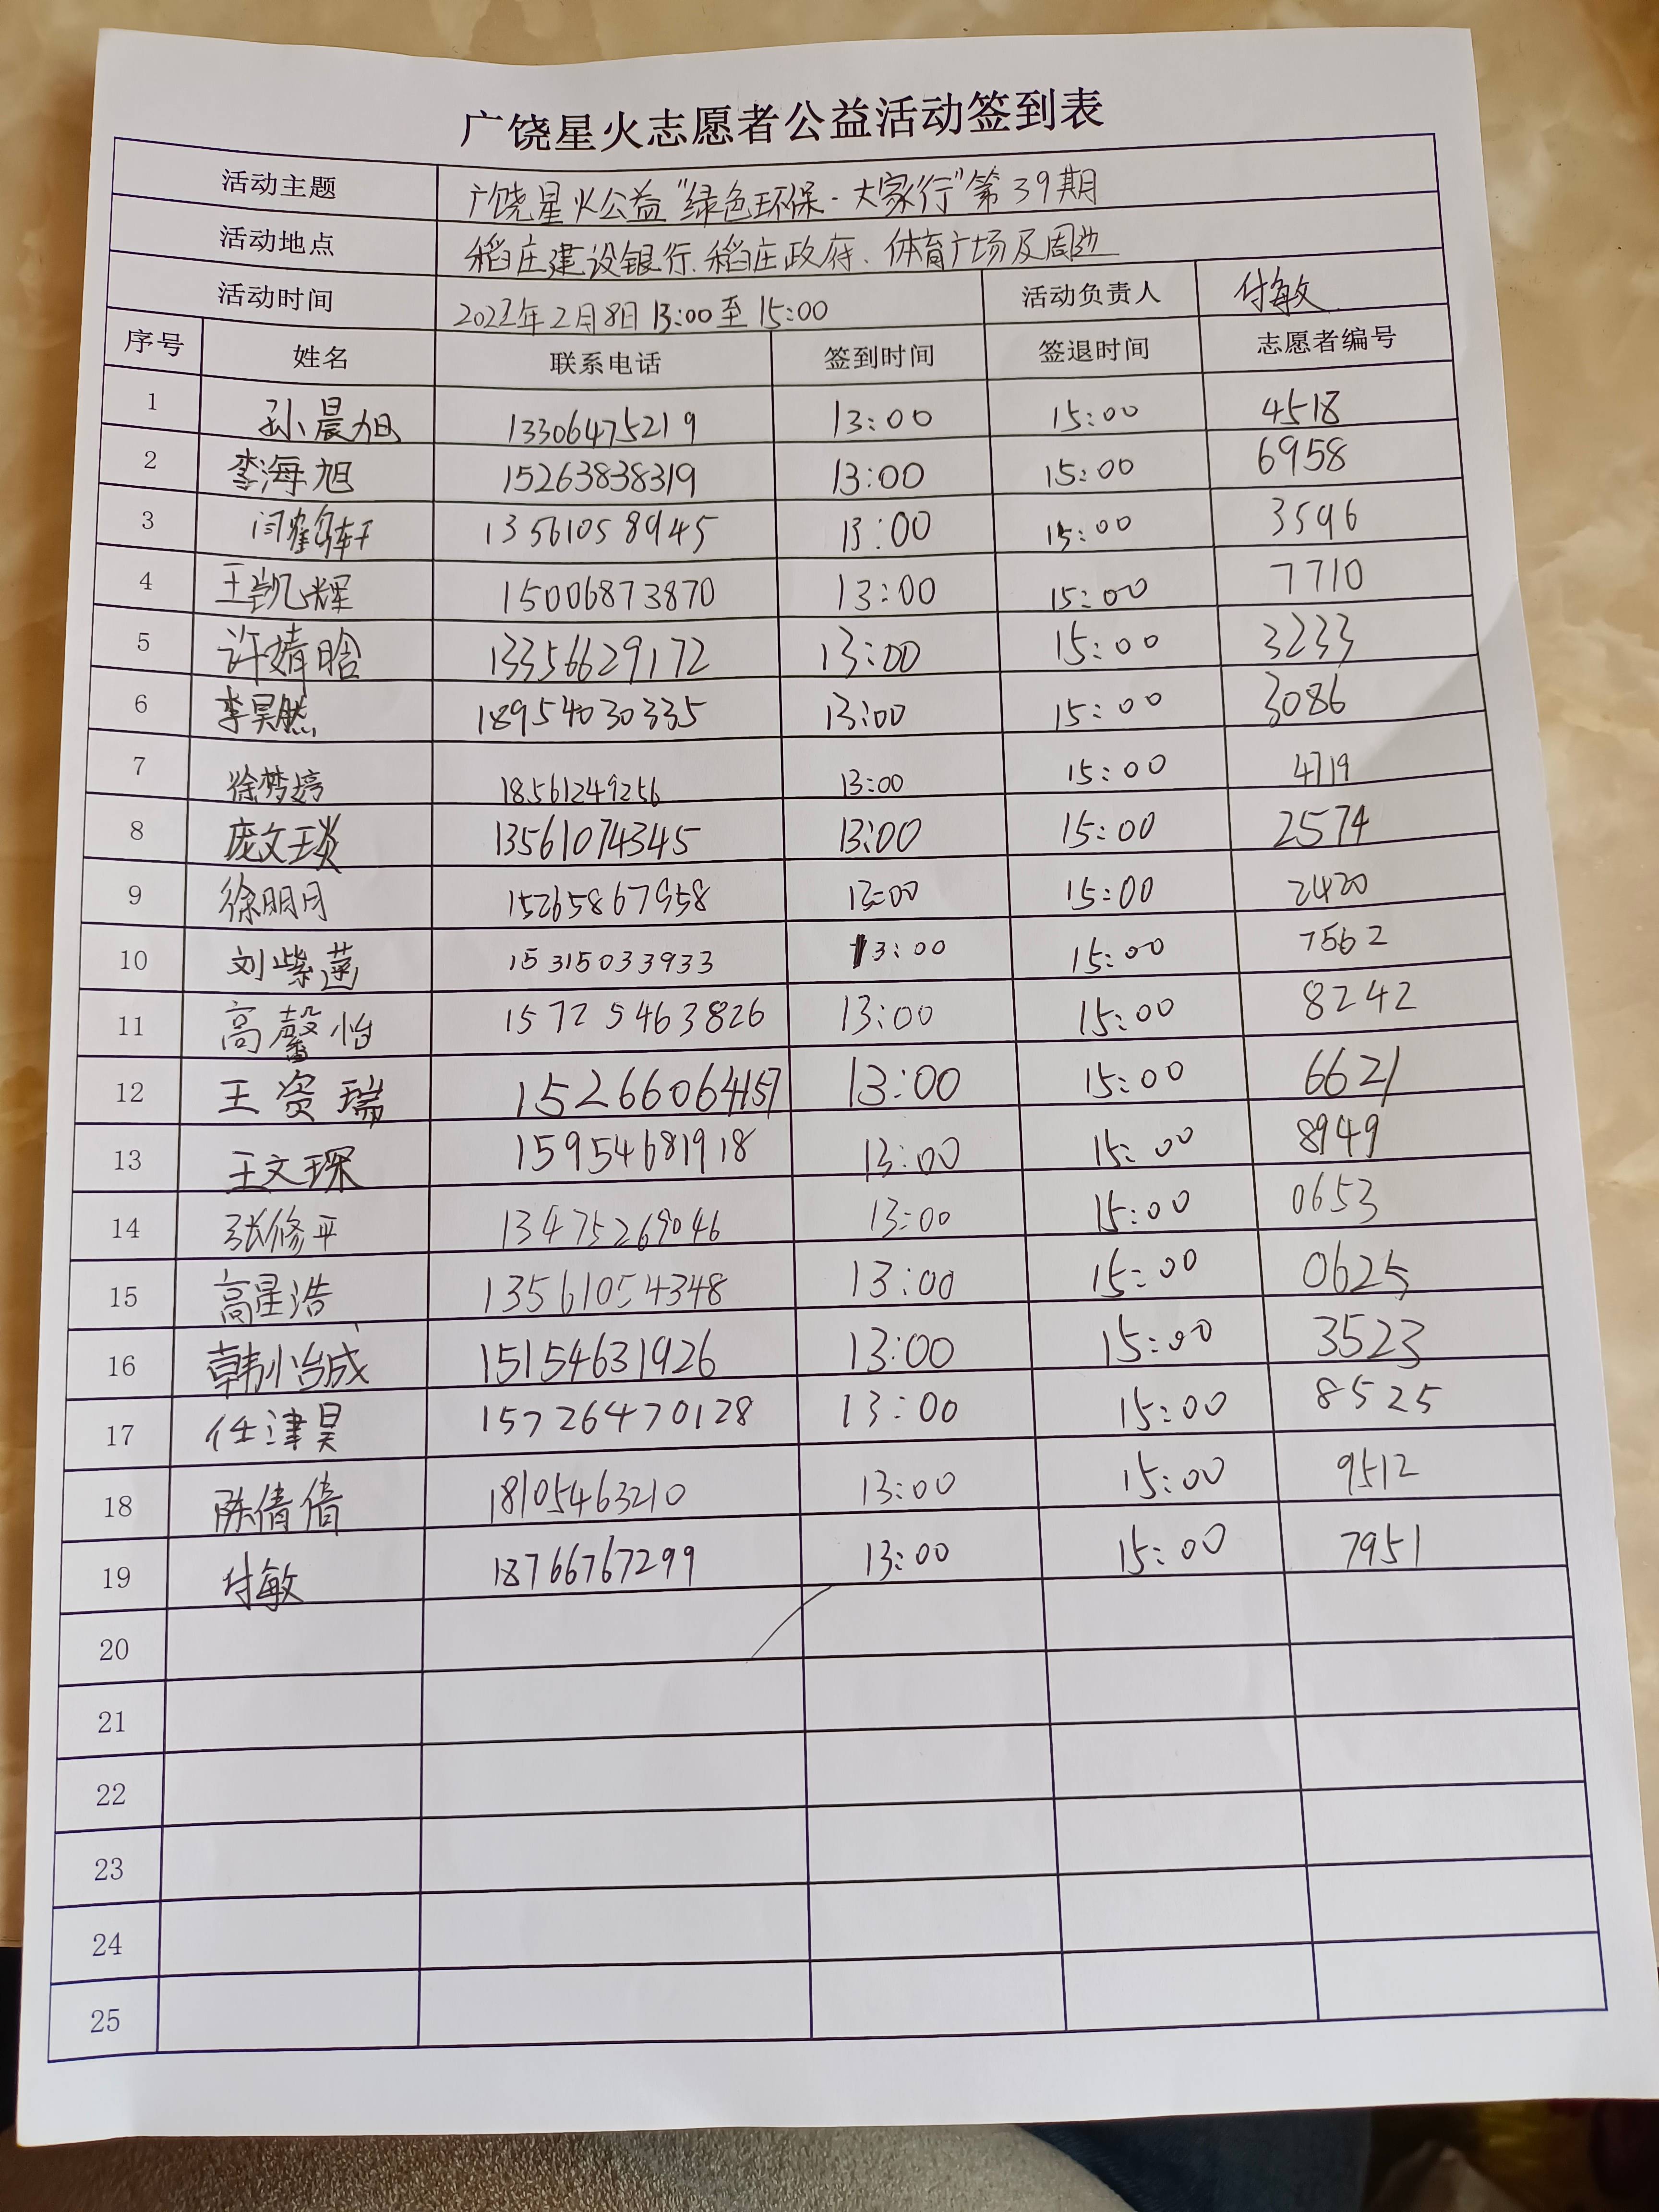 广饶星火志愿者公益活动签到表
活动主题 广饶星火公益“绿色环保·大家行”第39期
活动地点 稻庄建设银行、稻庄政府、体育广场及周边
活动时间 2022年2月8日 13:00至15:00 活动负责人 付敏
序号 姓名 联系电话 签到时间 签退时间 志愿者编号
1 孙晨旭 13306475219 13:00 15:00 4518
2 李海旭 15263838319 13:00 15:00 6958
3 闫鹤轩 13561058945 13:00 15:00 3596
4 王凯辉 15006873870 13:00 15:00 7710
5 许婧晗 13356629172 13:00 15:00 3233
6 李昊然 18954030335 13:00 15:00 3086
7 徐梦婷 18561249256 13:00 15:00 4719
8 庞文琰 13561074345 13:00 15:00 2574
9 徐明月 15265867958 13:00 15:00 2420
10 刘紫菡 15315033933 13:00 15:00 7562
11 高馨怡 15725463826 13:00 15:00 8242
12 王资瑞 15266064157 13:00 15:00 6621
13 王文琛 15954681918 13:00 15:00 8949
14 张修平 13475269046 13:00 15:00 0653
15 高星浩 13561054348 13:00 15:00 0625
16 韩冶成 15154631926 13:00 15:00 3523
17 任津昊 15726470128 13:00 15:00 8525
18 陈倩倩 18105463210 13:00 15:00 9512
19 付敏 18766767299 13:00 15:00 7951
20
21
22
23
24
25